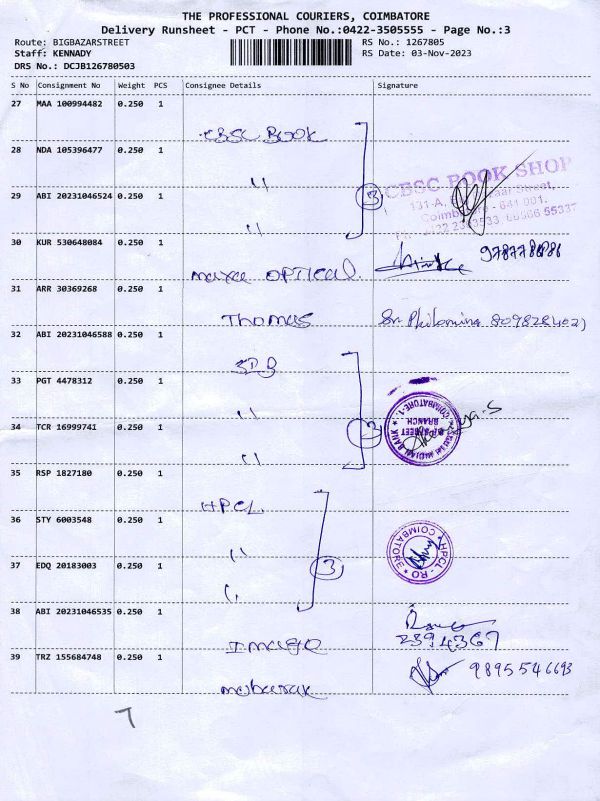 THE PROFESSIONAL COURIERS, COIMBATORE
Delivery Runsheet - PCT - Phone No.:0422-3505555 - Page No.:3
Route: BIGBAZARSTREET RS No.: 1267805
Staff: KENNADY RS Date: 03-Nov-2023
DRS No.: DCJB126780503
S No Consignment No Weight PCS Consignee Details Signature
27 MAA 100994482 0.250 1
CBSC BOOK
28 NDA 105396477 0.250 1
"
CBSC BOOK SHOP
29 ABI 20231046524 0.250 1
3
131-A,
Street,
Coimbatore - 641 001.
"
30 KUR 530648084 0.250 1
9787786986
OPTICAL
31 ARR 30369268 0.250 1
Thomas
Philomina
32 ABI 20231046588 0.250 1
33 PGT 4478312 0.250 1
"
34 TCR 16999741 0.250 1
COIMBATORE-1
BRANCH
"
35 RSP 1827180 0.250 1
HPCL
36 STY 6003548 0.250 1
"
COIMBATORE
HPCL - RO
37 EDQ 20183003 0.250 1
3
"
38 ABI 20231046535 0.250 1
Image
2394367
39 TRZ 155684748 0.250 1
9895546693
mubarak